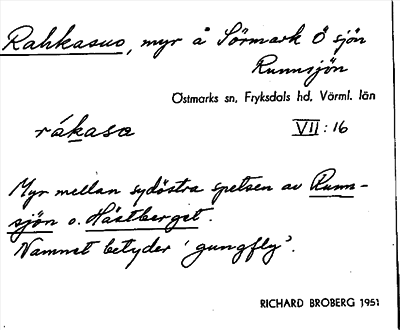 Rahkasuo, myr å Sörmark Ö sjön
Runnsjön
Östmarks sn, Fryksdals hd, Värml. län
rákasæ VII:16
Myr mellan sydöstra spetsen av Runn-
sjön o. Hästberget.
Namnet betyder 'gungfly'.
RICHARD BROBERG 1951